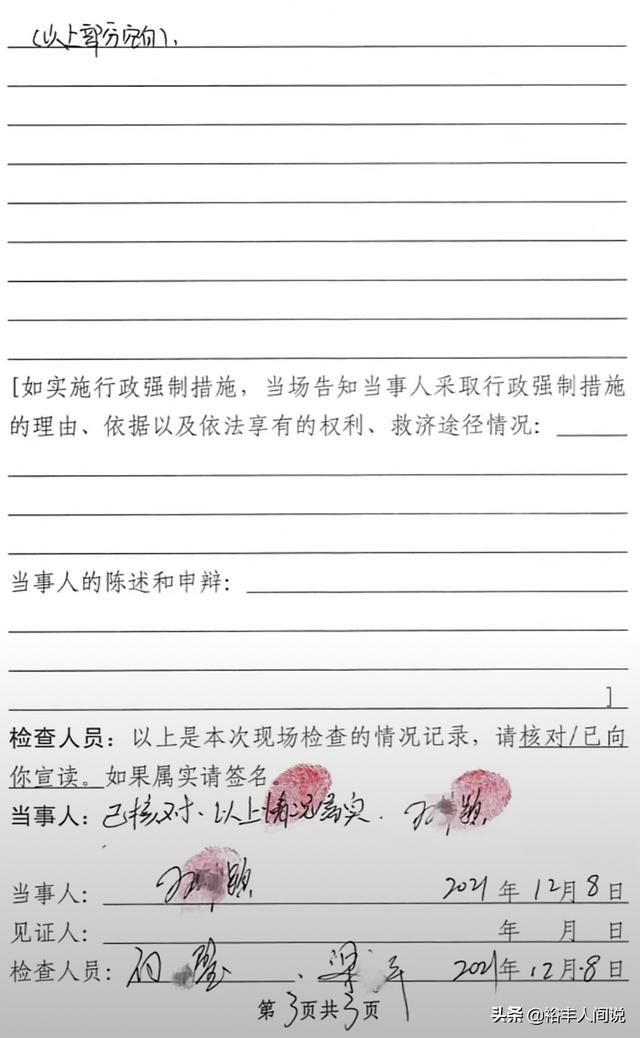 （以上部分空白）.
[如实施行政强制措施，当场告知当事人采取行政强制措施
的理由、依据以及依法享有的权利、救济途径情况：
当事人的陈述和申辩：
]
检查人员：以上是本次现场检查的情况记录，请核对/已向
你宣读。如果属实请签名。
当事人：已核对、以上情况属实.
当事人： 2021年12月8日
见证人： 年 月 日
检查人员： 2021年12月8日
第3页共3页
头条 @裕丰人间说